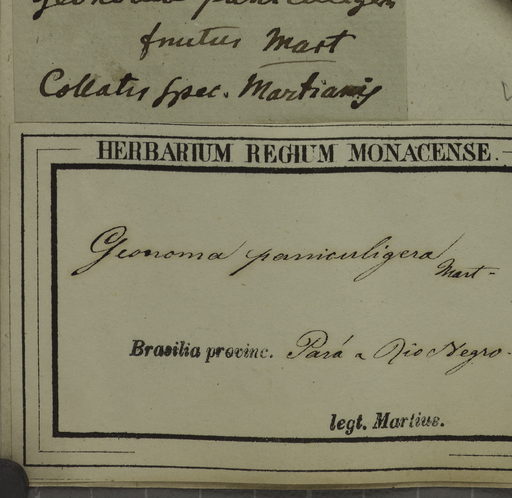 Geonoma paniculigera
fructus Mart
Collatis spec. Martianis
HERBARIUM REGIUM MONACENSE.
Geonoma paniculigera
Mart.
Brasilia provinc. Pará a Rio Negro.
legt. Martius.